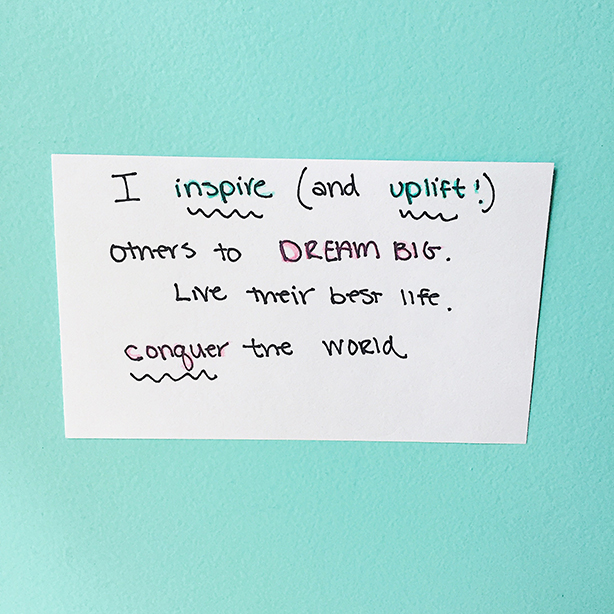 I inspire (and uplift!)
others to DREAM BIG.
Live their best life.
conquer the WORLD